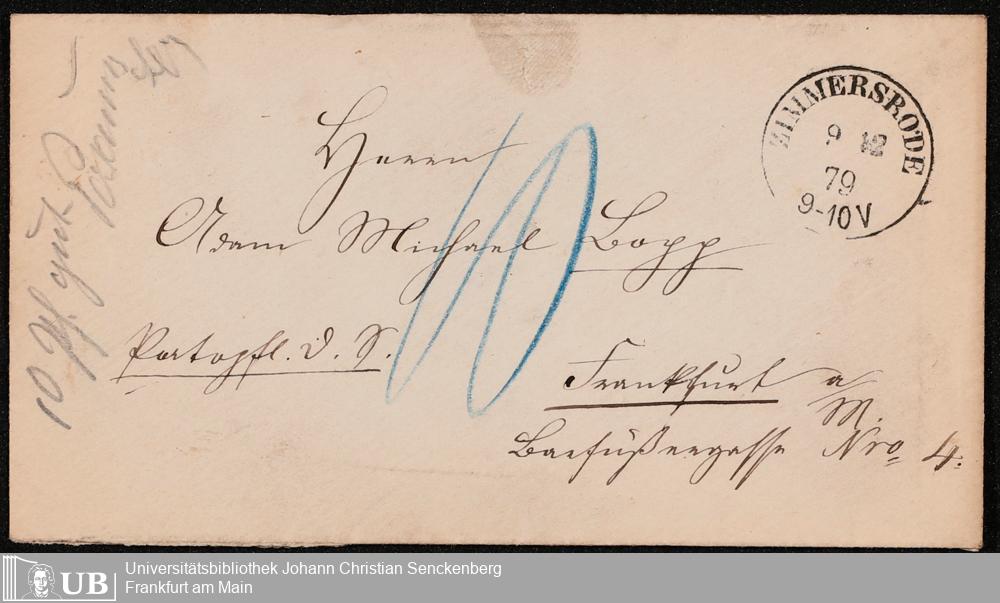 ZIMMERSRODE
9 12
79
9-10 V
Herrn
Adam Michael Bopp
10
Portopfl. D. S.
Frankfurt a/M.
Barfüßergasse Nro 4.
10 Pf.
UB
Universitätsbibliothek Johann Christian Senckenberg
Frankfurt am Main